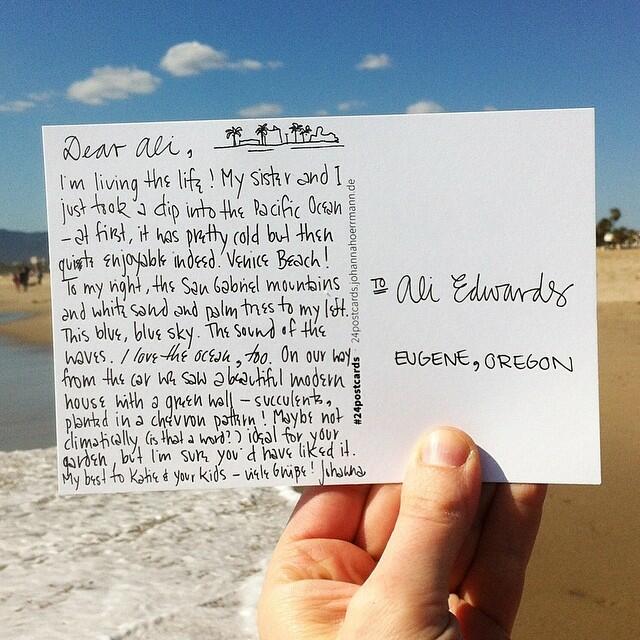 Dear Ali,
I'm living the life! My sister and I
just took a dip into the Pacific Ocean
– at first, it was pretty cold but then
quite enjoyable indeed. Venice Beach!
To my right, the San Gabriel mountains
and white sand and palm trees to my left.
This blue, blue sky. The sound of the
waves. I love the ocean, too. On our way
from the car we saw a beautiful modern
house with a green wall – succulents,
planted in a chevron pattern! Maybe not
climatically (is that a word?) ideal for your
garden, but I'm sure you'd have liked it.
My best to Katie & your kids – viele Grüße! Johanna
#24postcards - 24postcards.johannahoerrmann.de
TO Ali Edwards
EUGENE, OREGON